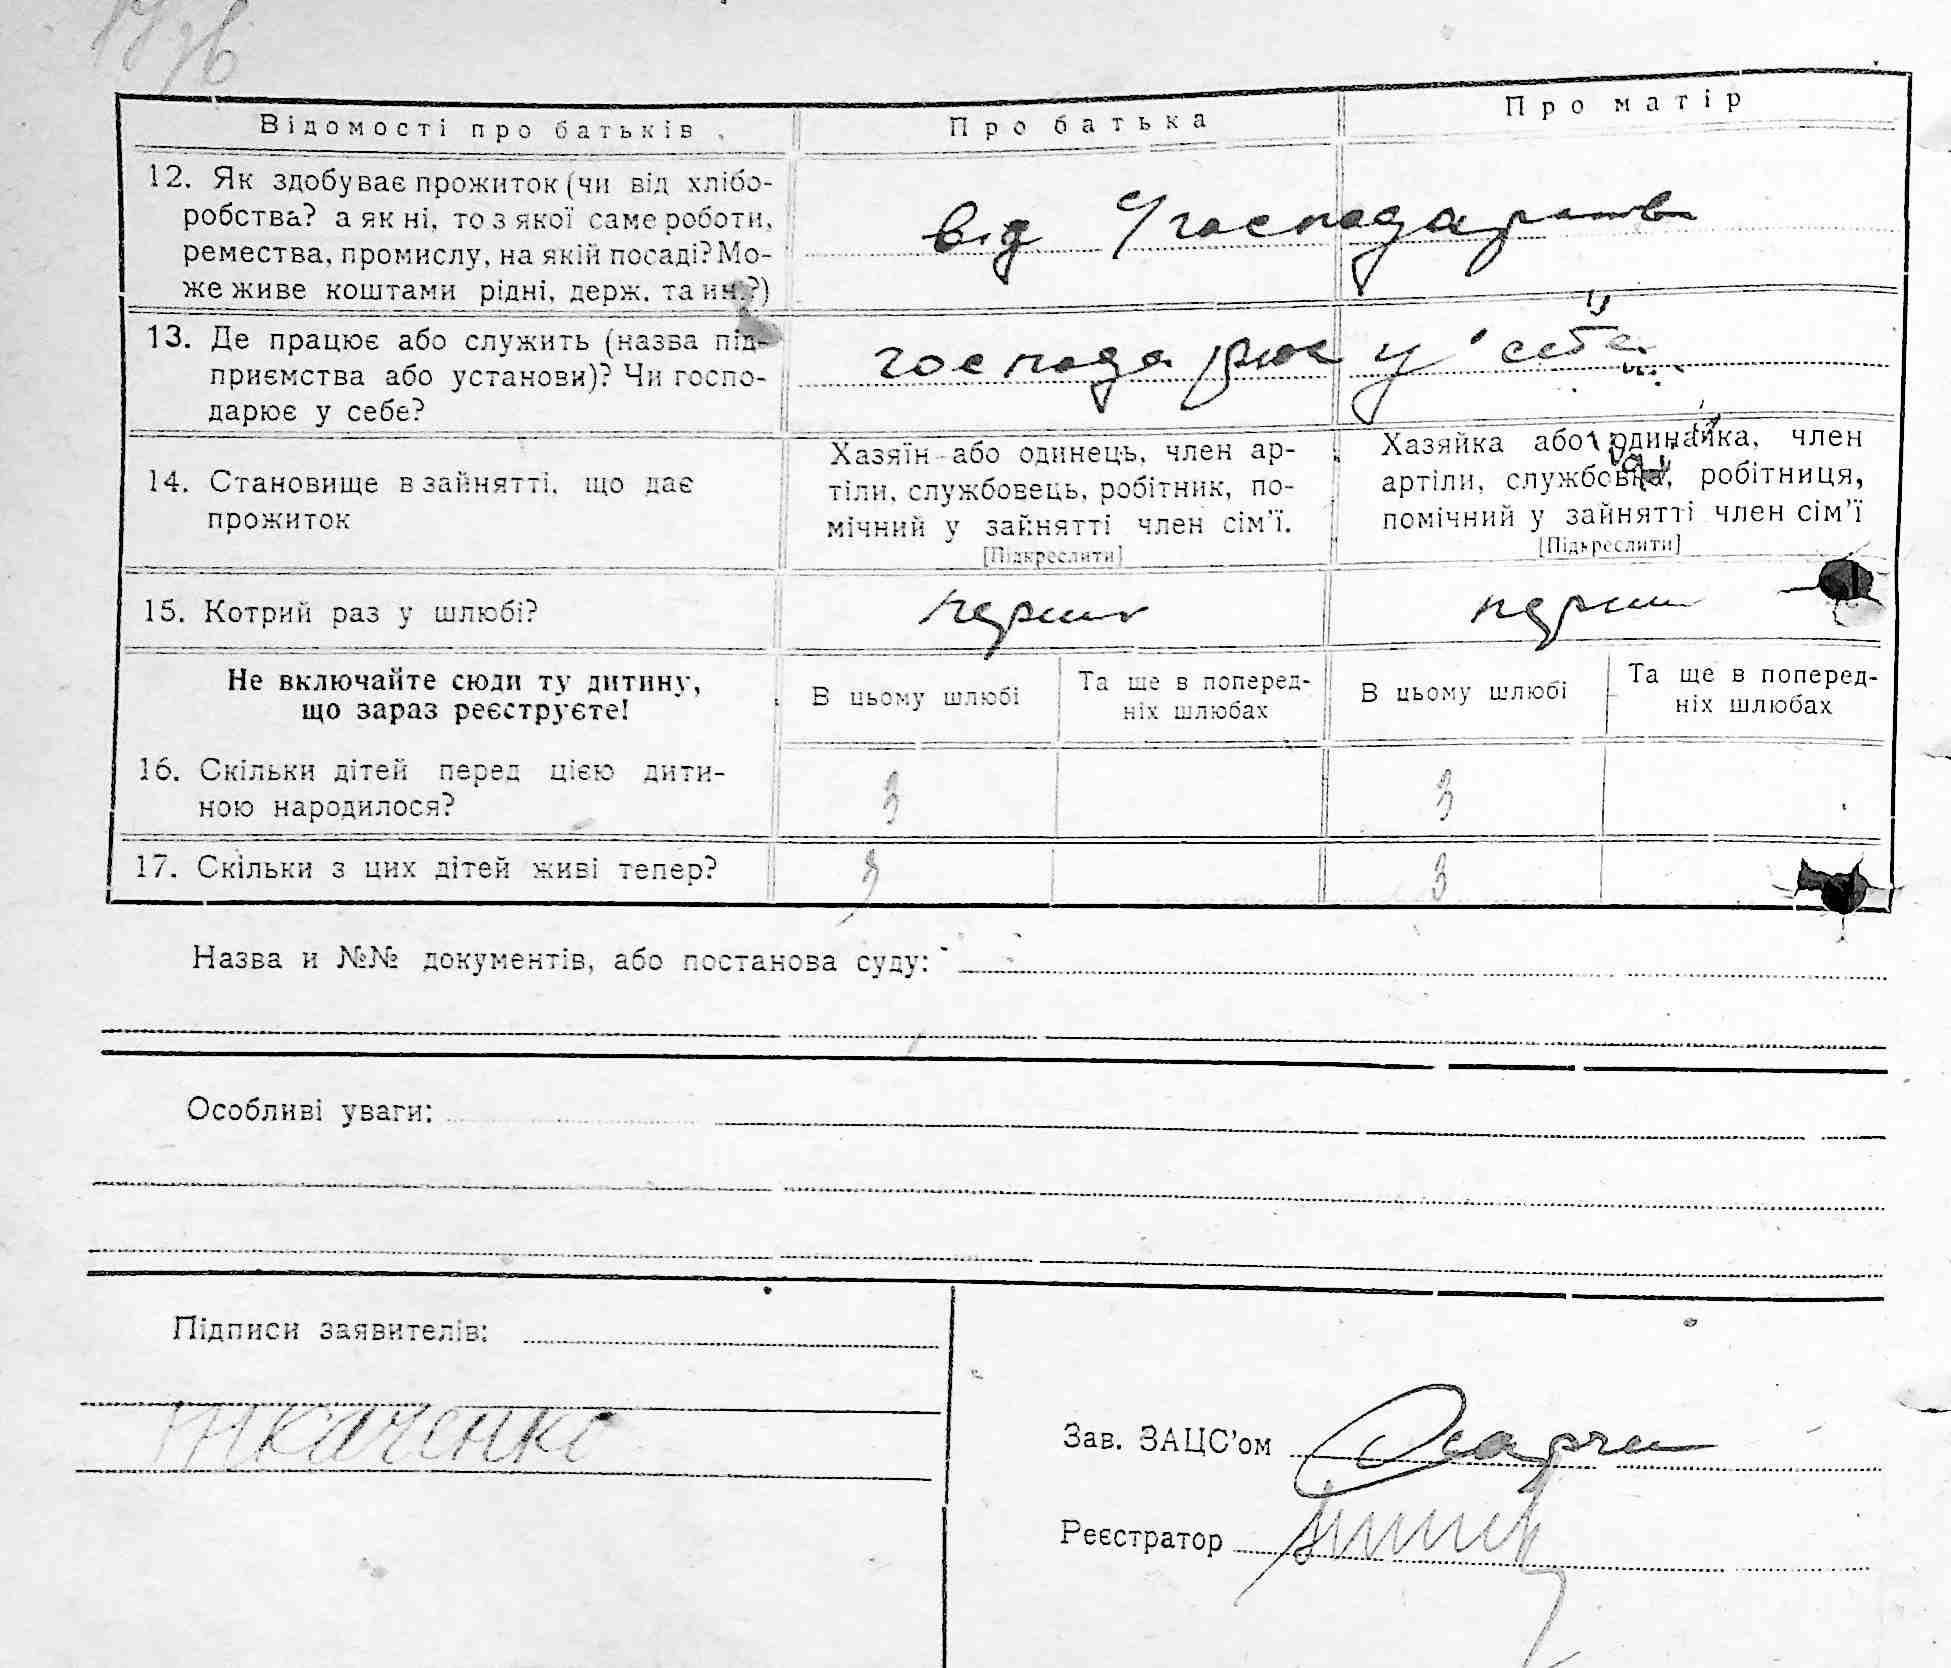 Відомості про батьків
Про батька
Про матір
12. Як здобуває прожиток (чи від хлібо-
робства? а як ні, то з якої саме роботи,
ремества, промислу, на якій посаді? Мо-
же живе коштами рідні, держ. та ин.?)
від с/господарства
13. Де працює або служить (назва під-
приємства або установи)? Чи госпо-
дарює у себе?
господарює у себе
14. Становище в зайнятті, що дає
прожиток
Хазяїн або одинець, член ар-
тіли, службовець, робітник, по-
мічний у зайнятті член сім'ї.
[Підкреслити]
Хазяйка або одиначка, член
артіли, службовка, робітниця,
помічний у зайнятті член сім'ї
[Підкреслити]
15. Котрий раз у шлюбі?
перший
перший
Не включайте сюди ту дитину,
що зараз реєструєте!
В цьому шлюбі
Та ще в поперед-
ніх шлюбах
В цьому шлюбі
Та ще в поперед-
ніх шлюбах
16. Скільки дітей перед цією дити-
ною народилося?
3
3
17. Скільки з цих дітей живі тепер?
3
3
Назва и №№ документів, або постанова суду:
Особливі уваги:
Підписи заявителів:
Ткаченко
Зав. ЗАЦС'ом
Реєстратор